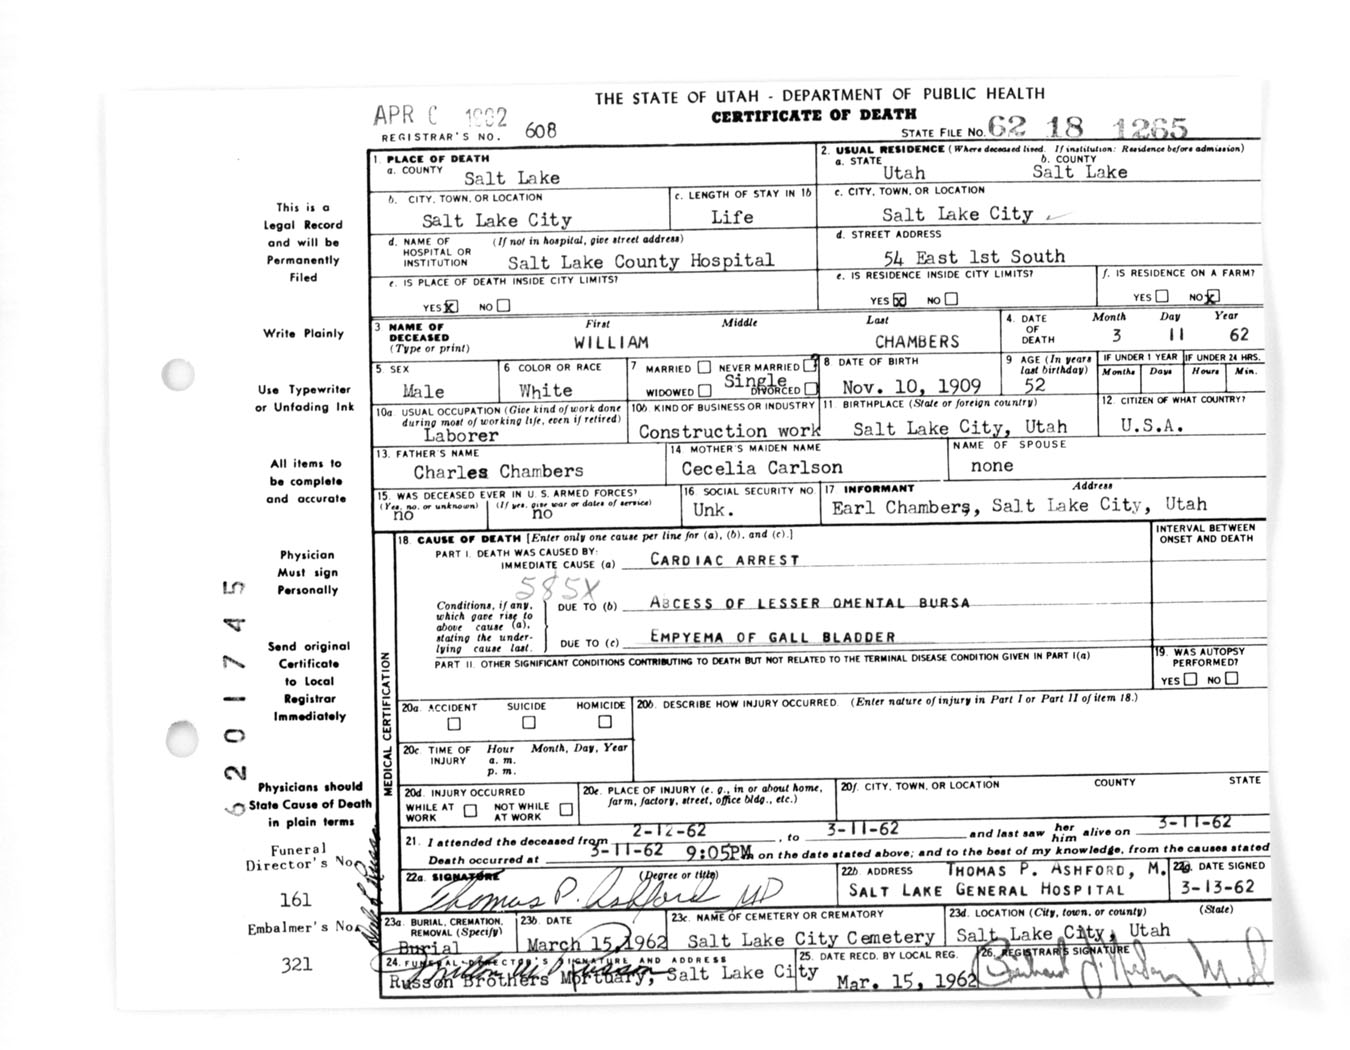 THE STATE OF UTAH - DEPARTMENT OF PUBLIC HEALTH
CERTIFICATE OF DEATH
APR 1962
REGISTRAR'S NO. 608
STATE FILE NO. 62 18 1265
This is a
Legal Record
and will be
Permanently
Filed
Write Plainly
Use Typewriter
or Unfading Ink
All items to
be complete
and accurate
Physician
Must sign
Personally
Send original
Certificate
to Local
Registrar
Immediately
Physicians should
State Cause of Death
in plain terms
Funeral
Director's No.
161
Embalmer's No.
321
6201745
1. PLACE OF DEATH
a. COUNTY Salt Lake
2. USUAL RESIDENCE (Where deceased lived. If institution: Residence before admission)
a. STATE Utah b. COUNTY Salt Lake
b. CITY, TOWN, OR LOCATION Salt Lake City
c. LENGTH OF STAY IN 1b Life
c. CITY, TOWN, OR LOCATION Salt Lake City
d. NAME OF HOSPITAL OR INSTITUTION (If not in hospital, give street address) Salt Lake County Hospital
d. STREET ADDRESS 54 East 1st South
e. IS PLACE OF DEATH INSIDE CITY LIMITS?
YES X NO
e. IS RESIDENCE INSIDE CITY LIMITS?
YES X NO
f. IS RESIDENCE ON A FARM?
YES NO X
3 NAME OF DECEASED (Type or print)
First Middle Last
WILLIAM CHAMBERS
4. DATE OF DEATH
Month Day Year
3 11 62
5. SEX Male
6 COLOR OR RACE White
7 MARRIED NEVER MARRIED
WIDOWED DIVORCED
Single
8 DATE OF BIRTH Nov. 10, 1909
9 AGE (In years last birthday) 52
IF UNDER 1 YEAR IF UNDER 24 HRS.
Months Days Hours Min.
10a. USUAL OCCUPATION (Give kind of work done during most of working life, even if retired) Laborer
10b. KIND OF BUSINESS OR INDUSTRY Construction work
11. BIRTHPLACE (State or foreign country) Salt Lake City, Utah
12. CITIZEN OF WHAT COUNTRY? U.S.A.
13. FATHER'S NAME Charles Chambers
14. MOTHER'S MAIDEN NAME Cecelia Carlson
NAME OF SPOUSE none
15. WAS DECEASED EVER IN U.S. ARMED FORCES?
(Yes, no, or unknown) (If yes, give war or dates of service)
no no
16. SOCIAL SECURITY NO. Unk.
17 INFORMANT Address
Earl Chambers, Salt Lake City, Utah
MEDICAL CERTIFICATION
18. CAUSE OF DEATH [Enter only one cause per line for (a), (b), and (c).]
INTERVAL BETWEEN ONSET AND DEATH
PART I. DEATH WAS CAUSED BY:
IMMEDIATE CAUSE (a) CARDIAC ARREST
585X
Conditions, if any, which gave rise to above cause (a), stating the underlying cause last.
DUE TO (b) ABCESS OF LESSER OMENTAL BURSA
DUE TO (c) EMPYEMA OF GALL BLADDER
PART II. OTHER SIGNIFICANT CONDITIONS CONTRIBUTING TO DEATH BUT NOT RELATED TO THE TERMINAL DISEASE CONDITION GIVEN IN PART I(a)
19. WAS AUTOPSY PERFORMED?
YES NO
20a. ACCIDENT SUICIDE HOMICIDE
20b. DESCRIBE HOW INJURY OCCURRED. (Enter nature of injury in Part I or Part II of item 18.)
20c. TIME OF INJURY Hour Month, Day, Year
a. m.
p. m.
20d. INJURY OCCURRED
WHILE AT WORK NOT WHILE AT WORK
20e. PLACE OF INJURY (e. g., in or about home, farm, factory, street, office bldg., etc.)
20f. CITY, TOWN, OR LOCATION COUNTY STATE
21. I attended the deceased from 2-12-62, to 3-11-62 and last saw her him alive on 3-11-62
Death occurred at 3-11-62 9:05PM on the date stated above; and to the best of my knowledge, from the causes stated
22a. SIGNATURE (Degree or title)
Thomas P. Ashford MD
22b. ADDRESS THOMAS P. ASHFORD, M.
SALT LAKE GENERAL HOSPITAL
22g. DATE SIGNED 3-13-62
23a. BURIAL, CREMATION, REMOVAL (Specify) Burial
23b. DATE March 15, 1962
23c. NAME OF CEMETERY OR CREMATORY Salt Lake City Cemetery
23d. LOCATION (City, town, or county) (State)
Salt Lake City, Utah
24. FUNERAL DIRECTOR'S SIGNATURE AND ADDRESS
Russon Brothers Mortuary, Salt Lake City
25. DATE RECD. BY LOCAL REG. Mar. 15, 1962
26. REGISTRAR'S SIGNATURE